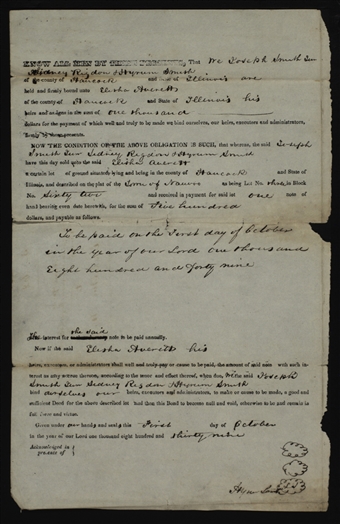 KNOW ALL MEN BY THESE PRESENTS, That We Joseph Smith Jun
Sidney Rigdon & Hyrum Smith
of the county of Hancock and State of Illinois are
held and firmly bound unto Elisha Averett
of the county of Hancock and State of Illinois his
heirs and assigns in the sum of one thousand
dollars for the payment of which well and truly to be made we bind ourselves, our heirs, executors and administrators,
firmly by these presents.
NOW THE CONDITION OF THE ABOVE OBLIGATION IS SUCH, that whereas, the said Joseph
Smith Jun Sidney Rigdon & Hyrum Smith
have this day sold unto the said Elisha Averett
a certain lot of ground situate lying and being in the county of Hancock and State of
Illinois, and described on the plot of the Town of Nauvoo as being Lot No. three, in Block
No. Sixty two and received in payment for said lot one note of
hand bearing even date herewith, for the sum of Five hundred
dollars, and payable as follows.
To be paid on the First day of October
in the year of our Lord One thousand
Eight hundred and forty nine
The interest for the said note to be paid annually.
Now if the said Elisha Averett his
heirs, executors, or administrators shall well and truly pay or cause to be paid, the amount of said note with such in-
terest as may accrue thereon, according to the tenor and effect thereof, when due, we the said Joseph
Smith Jun Sidney Rigdon & Hyrum Smith
bind ourselves our heirs, executors and administrators, to make or cause to be made, a good and
sufficient Deed for the above described lot and then this Bond to become null and void, otherwise to be and remain in
full force and virtue.
Given under our hands and seals this First day of October
in the year of our Lord one thousand eight hundred and thirty nine
Acknowledged in
presence of
Hyrum Smith